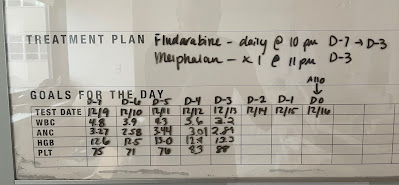 TREATMENT PLAN Fludarabine - daily @ 10 pm D-7 → D-3
Melphalan - x 1 @ 11 pm D-3
Allo
↓
GOALS FOR THE DAY
D-7 D-6 D-5 D-4 D-3 D-2 D-1 D0
TEST DATE 12/9 12/10 12/11 12/12 12/13 12/14 12/15 12/16
WBC 4.8 3.9 4.3 5.6 3.2
ANC 3.27 2.58 3.44 3.01 2.89
HGB 12.6 12.5 13.0 12.9
PLT 75 71 76 83 88